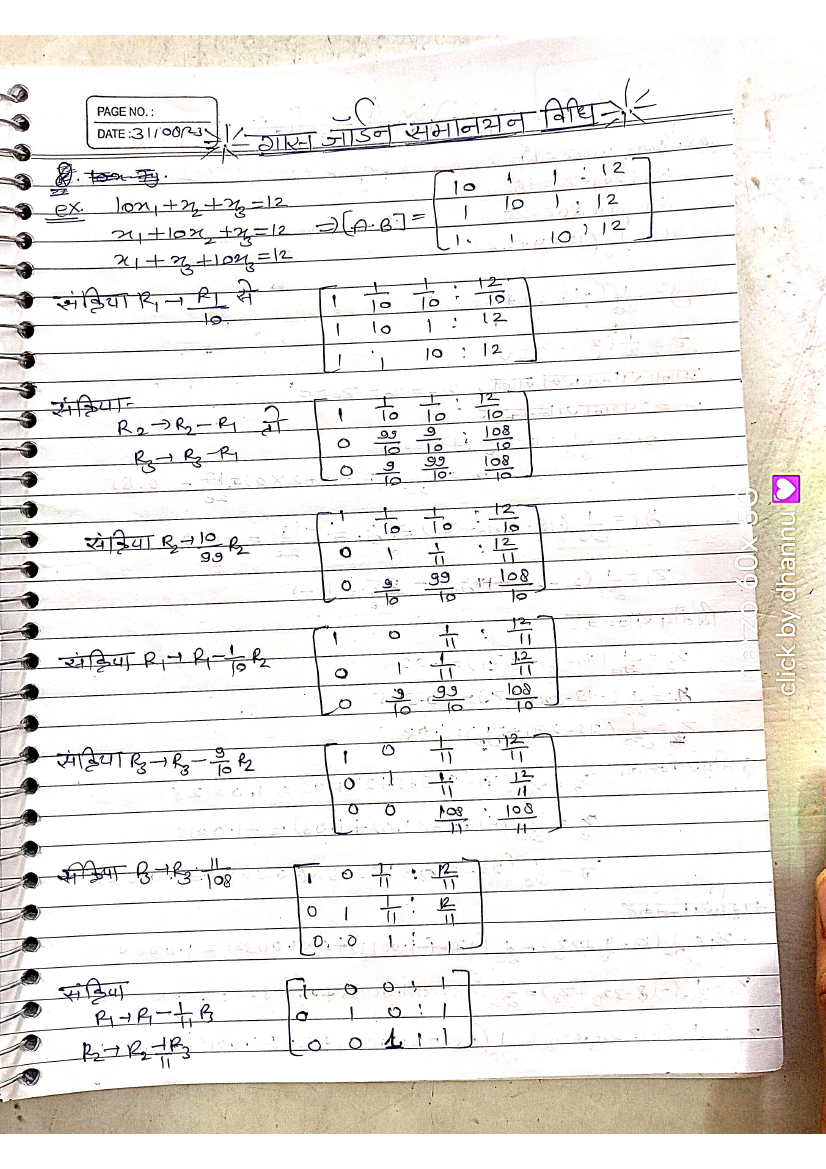 PAGE NO.:
DATE: 31/08/23
गास जॉर्डन समानयन विधि
ex. 10x₁+x₂+x₃=12
x₁+10x₂+x₃=12
x₁+x₃+10x₃=12
⇒[A·B]=
10 1 1 : 12
1 10 1 : 12
1 1 10 : 12
संक्रिया R₁→R₁/10 से
1 1/10 1/10 : 12/10
1 10 1 : 12
1 1 10 : 12
संक्रिया-
R₂→R₂-R₁ से
R₃→R₃-R₁
1 1/10 1/10 : 12/10
0 99/10 9/10 : 108/10
0 9/10 99/10 : 108/10
संक्रिया R₂→10/99 R₂
1 1/10 1/10 : 12/10
0 1 1/11 : 12/11
0 9/10 99/10 : 108/10
संक्रिया R₁→R₁-1/10 R₂
1 0 1/11 : 12/11
0 1 1/11 : 12/11
0 9/10 99/10 : 108/10
संक्रिया R₃→R₃-9/10 R₂
1 0 1/11 : 12/11
0 1 1/11 : 12/11
0 0 108/11 : 108/11
संक्रिया R₃→R₃·11/108
1 0 1/11 : 12/11
0 1 1/11 : 12/11
0 0 1 : 1
संक्रिया
R₁→R₁-1/11 R₃
R₂→R₂-1/11 R₃
1 0 0 : 1
0 1 0 : 1
0 0 1 : 1
narzo 60x 5G
click by dhannu 💟